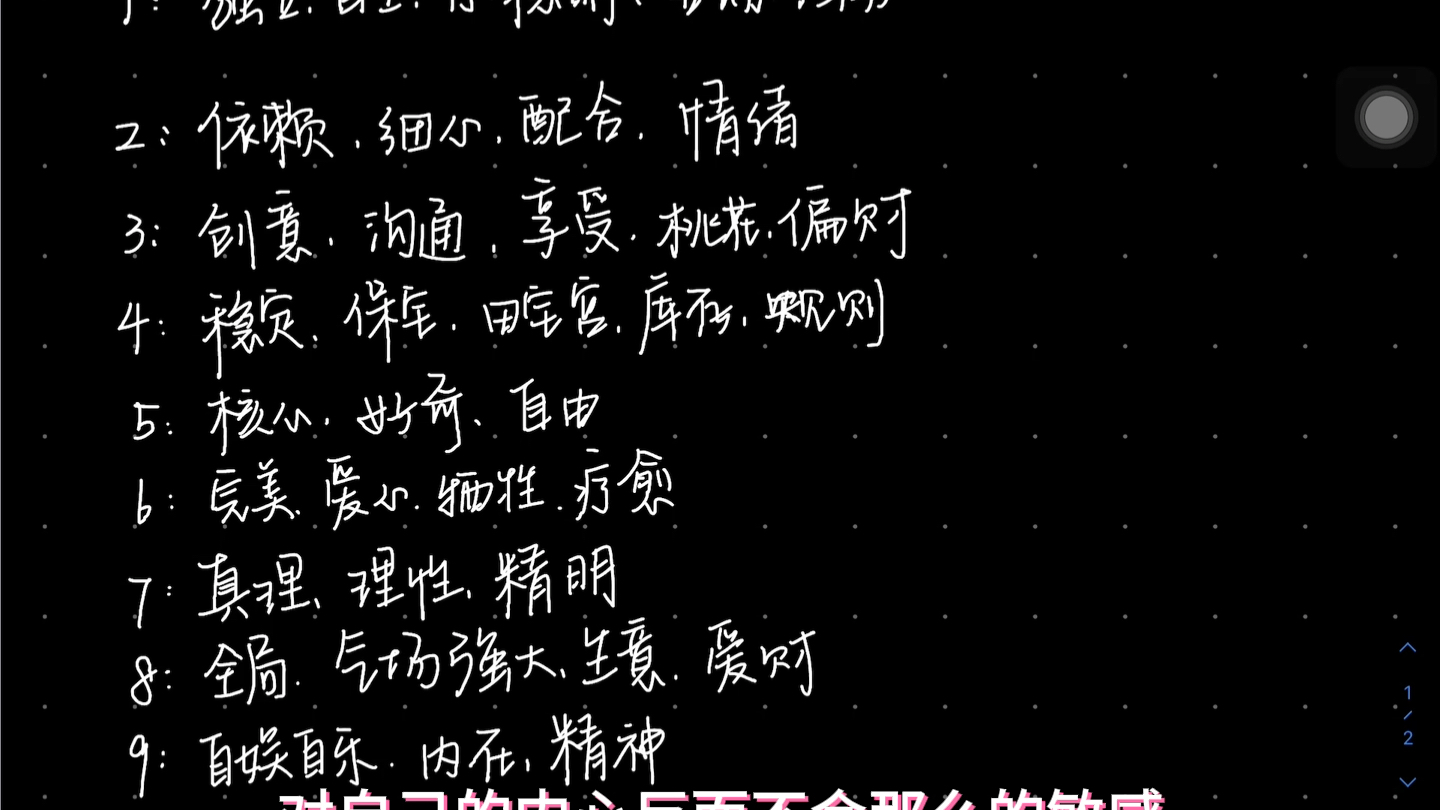 2: 依赖、细小、配合、情绪
3: 创意、沟通、享受、桃花、偏财
4: 稳定、保宅、田宅宫、库存、规则
5: 核心、好奇、自由
6: 完美、爱心、牺牲、疗愈
7: 真理、理性、精明
8: 全局、气场强大、生意、爱财
9: 自娱自乐、内在、精神
对自己的中心反而不会那么的敏感
1/2